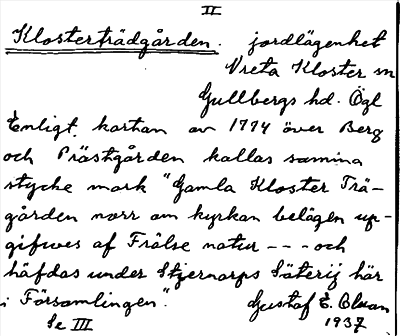 II
Klosterträdgården. jordlägenhet
Vreta Kloster sn
Gullbergs hd. Ögl
Enligt kartan av 1774 över Berg
och Prästgården kallas samma
stycke mark "Gamla Kloster Trä-
gården norr om kyrkan belägen up-
gifwes af Frälse natur - - - och
häfdas under Stjernorps Säterij här
i Församlingen".
Gustaf E. Olsson
Se III
1937